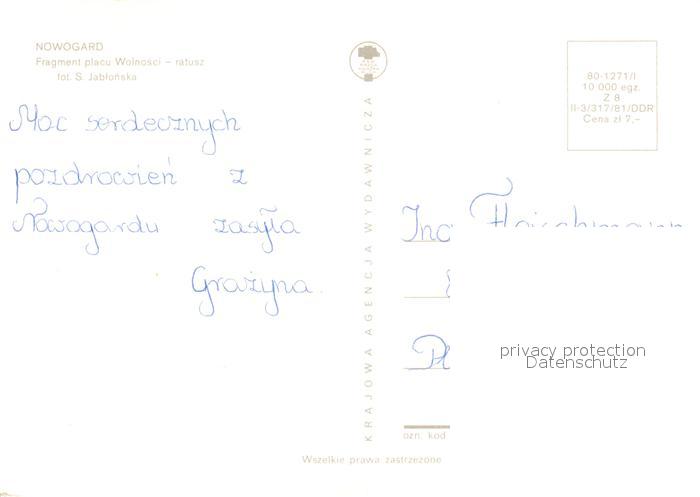 NOWOGARD
Fragment placu Wolności – ratusz
fot. S. Jabłońska
Moc serdecznych
pozdrowień z
Nowogardu zasyła
Grażyna.
KRAJOWA AGENCJA WYDAWNICZA
80-1271/I
10 000 egz.
Z 8
II-3/317/81/DDR
Cena zł 7,–
privacy protection
Datenschutz
ozn. kod
Wszelkie prawa zastrzeżone